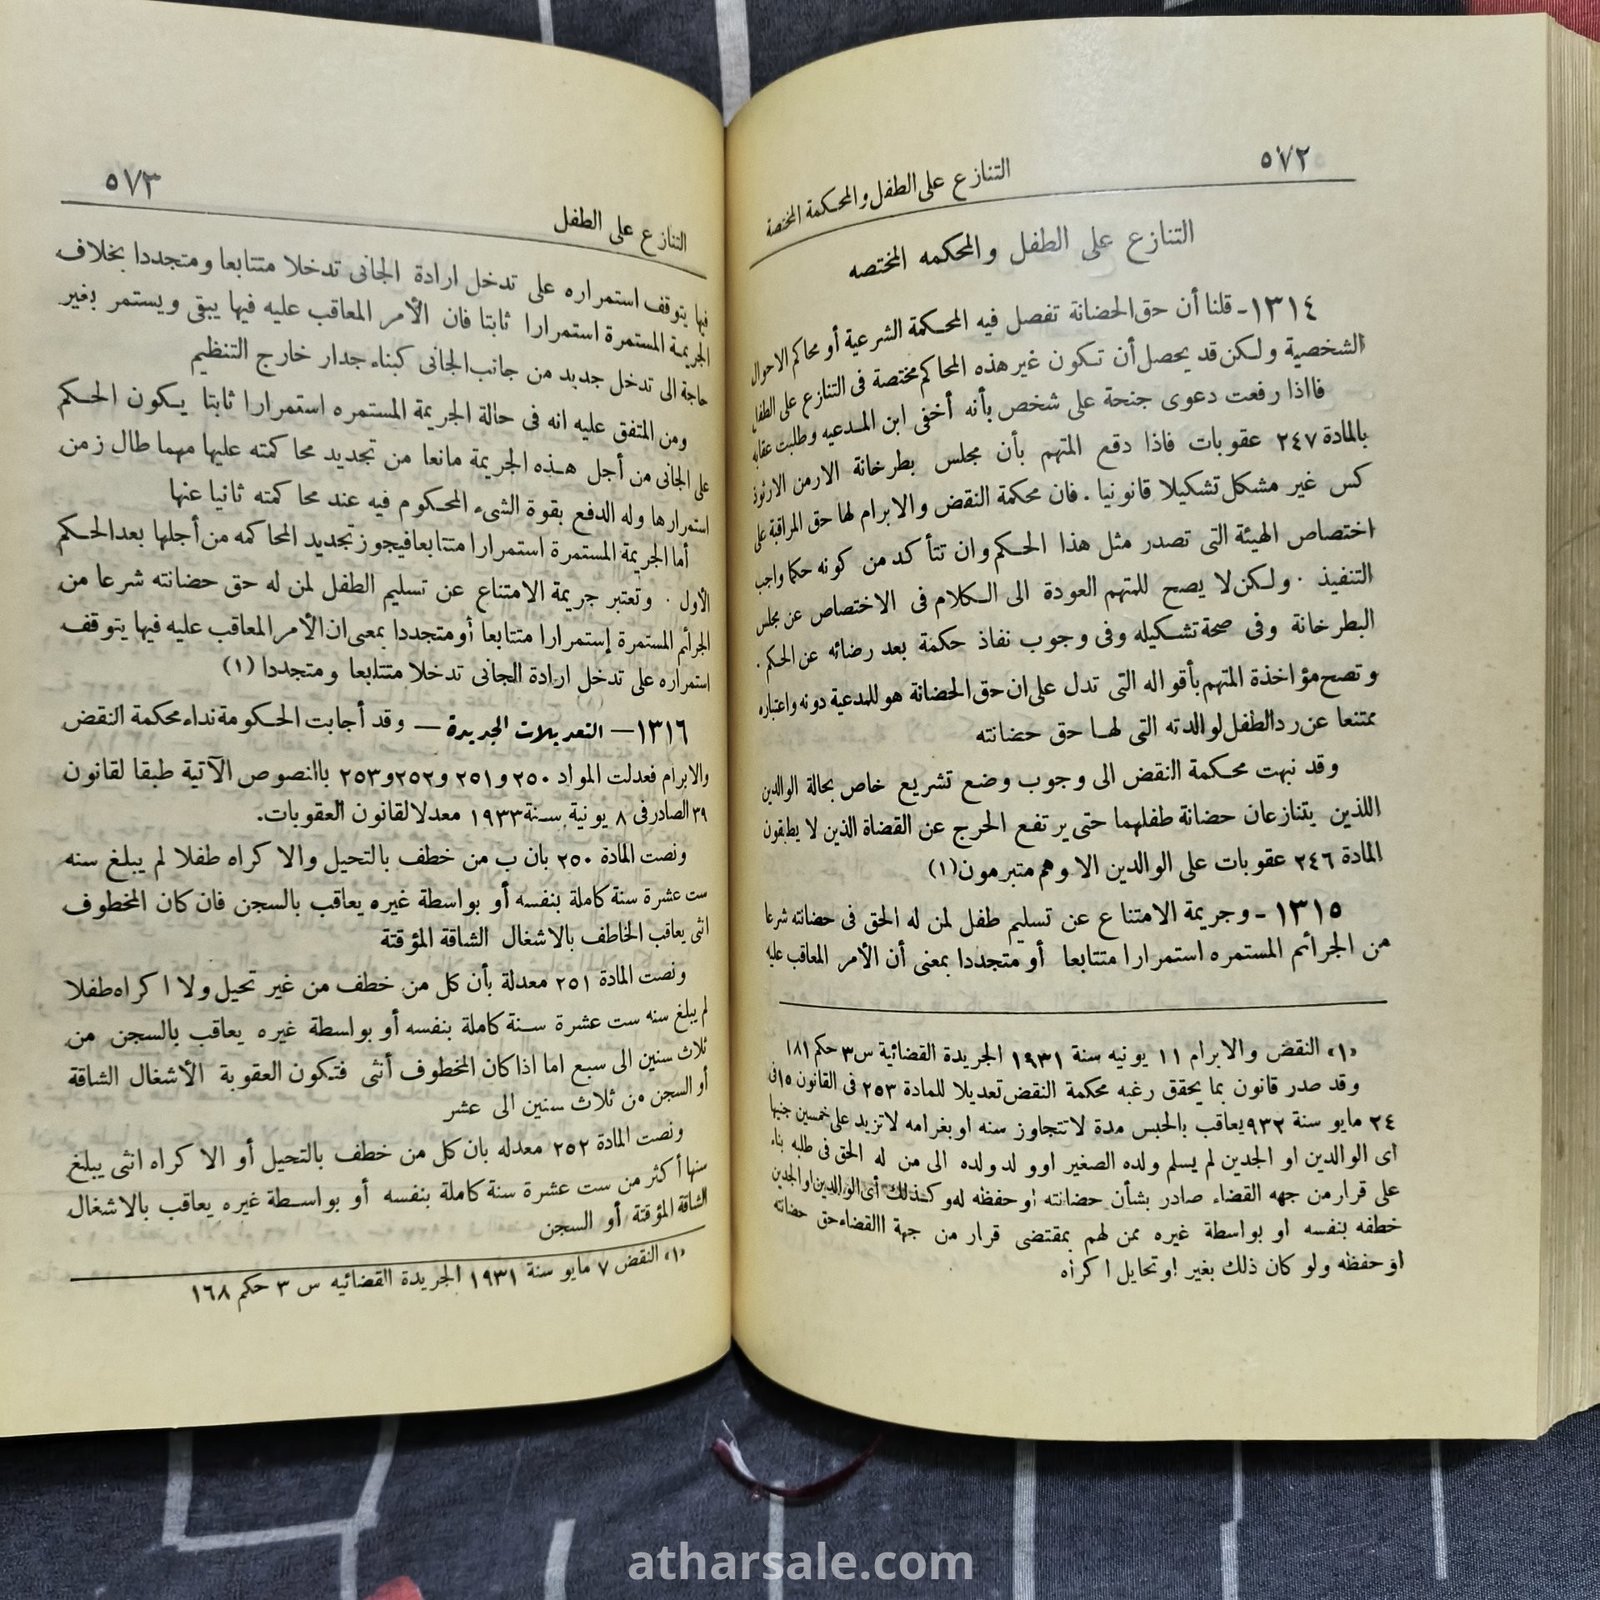 ٥٧٢
التنازع على الطفل والمحكمة المختصة
التنازع على الطفل والمحكمه المختصه
١٣١٤ - قلنا أن حق الحضانة تفصل فيه المحكمة الشرعية أو محاكم الاحوال
الشخصية ولكن قد يحصل أن تكون غير هذه المحاكم مختصة فى التنازع على الطفل
فااذا رفعت دعوى جنحة على شخص بأنه أخفى ابن المدعيه وطلبت عقابه
بالمادة ٢٤٧ عقوبات فاذا دفع المتهم بأن مجلس بطرخانة الارمن الارثوذ
كس غير مشكل تشكيلا قانونيا . فان محكمة النقض والابرام لها حق المراقبة على
اختصاص الهيئة التى تصدر مثل هذا الحكم وان تتأكد من كونه حكما واجب
التنفيذ . ولكن لا يصح للمتهم العودة الى الكلام فى الاختصاص عن مجلس
البطرخانة وفى صحة تشكيله وفى وجوب نفاذ حكمة بعد رضائه عن الحكم .
وتصح مؤاخذة المتهم بأقواله التى تدل على ان حق الحضانة هو للمدعية دونه واعتباره
ممتنعا عن رد الطفل لوالدته التى لها حق حضانته
وقد نبهت محكمة النقض الى وجوب وضع تشريع خاص بحالة الوالدين
اللذين يتنازعان حضانة طفلهما حتى يرتفع الحرج عن القضاة الذين لا يطبقون
المادة ٢٤٦ عقوبات على الوالدين الا وهم متبرمون (١)
١٣١٥ - وجريمة الامتناع عن تسليم طفل لمن له الحق فى حضانته شرعا
من الجرائم المستمره استمرارا متتابعا أو متجددا بمعنى أن الأمر المعاقب عليه
«١» النقض والابرام ١١ يونيه سنة ١٩٣١ الجريدة القضائية س ٣ حكم ١٨١
وقد صدر قانون بما يحقق رغبه محكمة النقض تعديلا للمادة ٢٥٣ فى القانون ١٥ فى
٢٤ مايو سنة ٩٣٢ يعاقب بالحبس مدة لا تتجاوز سنه او بغرامه لا تزيد على خمسين جنيها
اى الوالدين او الجدين لم يسلم ولده الصغير او ولد ولده الى من له الحق فى طلبه بناء
على قرار من جهه القضاء صادر بشأن حضانته او حفظه له وكذلك أى الوالدين او الجدين
خطفه بنفسه او بواسطة غيره ممن لهم بمقتضى قرار من جهة االقضاء حق حضانته
او حفظه ولو كان ذلك بغير او تحايل اكراه
٥٧٣
التنازع على الطفل
فيها يتوقف استمراره على تدخل ارادة الجانى تدخلا متتابعا ومتجددا بخلاف
الجريمة المستمرة استمرارا ثابتا فان الأمر المعاقب عليه فيها يبقى ويستمر بغير
حاجة الى تدخل جديد من جانب الجانى كبناء جدار خارج التنظيم
ومن المتفق عليه انه فى حالة الجريمة المستمره استمرارا ثابتا يكون الحكم
على الجانى من أجل هذه الجريمة مانعا من تجديد محاكمته عليها مهما طال زمن
استمرارها وله الدفع بقوة الشىء المحكوم فيه عند محاكمته ثانيا عنها
أما الجريمة المستمرة استمرارا متتابعا فيجوز تجديد المحاكمه من أجلها بعد الحكم
الأول . وتعتبر جريمة الامتناع عن تسليم الطفل لمن له حق حضانته شرعا من
الجرائم المستمرة إستمرارا متتابعا أو متجددا بمعنى ان الأمر المعاقب عليه فيها يتوقف
استمراره على تدخل ارادة الجانى تدخلا متتابعا ومتجددا (١)
١٣١٦ — التعديلات الجديدة — وقد أجابت الحكومة نداء محكمة النقض
والابرام فعدلت المواد ٢٥٠ و٢٥١ و٢٥٢ و٢٥٣ باانصوص الآتية طبقا لقانون
٣٩ الصادر فى ٨ يونية سنة ١٩٣٣ معدلا لقانون العقوبات.
ونصت المادة ٢٥٠ بان ب من خطف بالتحيل والاكراه طفلا لم يبلغ سنه
ست عشرة سنة كاملة بنفسه أو بواسطة غيره يعاقب بالسجن فان كان المخطوف
انثى يعاقب الخاطف بالاشغال الشاقة المؤقتة
ونصت المادة ٢٥١ معدلة بأن كل من خطف من غير تحيل ولا اكراه طفلا
لم يبلغ سنه ست عشرة سنة كاملة بنفسه أو بواسطة غيره يعاقب بالسجن من
ثلاث سنين الى سبع اما اذا كان المخطوف أنثى فتكون العقوبة الأشغال الشاقة
أو السجن من ثلاث سنين الى عشر
ونصت المادة ٢٥٢ معدله بان كل من خطف بالتحيل أو الاكراه انثى يبلغ
سنها أكثر من ست عشرة سنة كاملة بنفسه أو بواسطة غيره يعاقب بالاشغال
الشاقة المؤقتة أو السجن
«١» النقض ٧ مايو سنة ١٩٣١ الجريدة القضائيه س ٣ حكم ١٦٨
atharsale.com